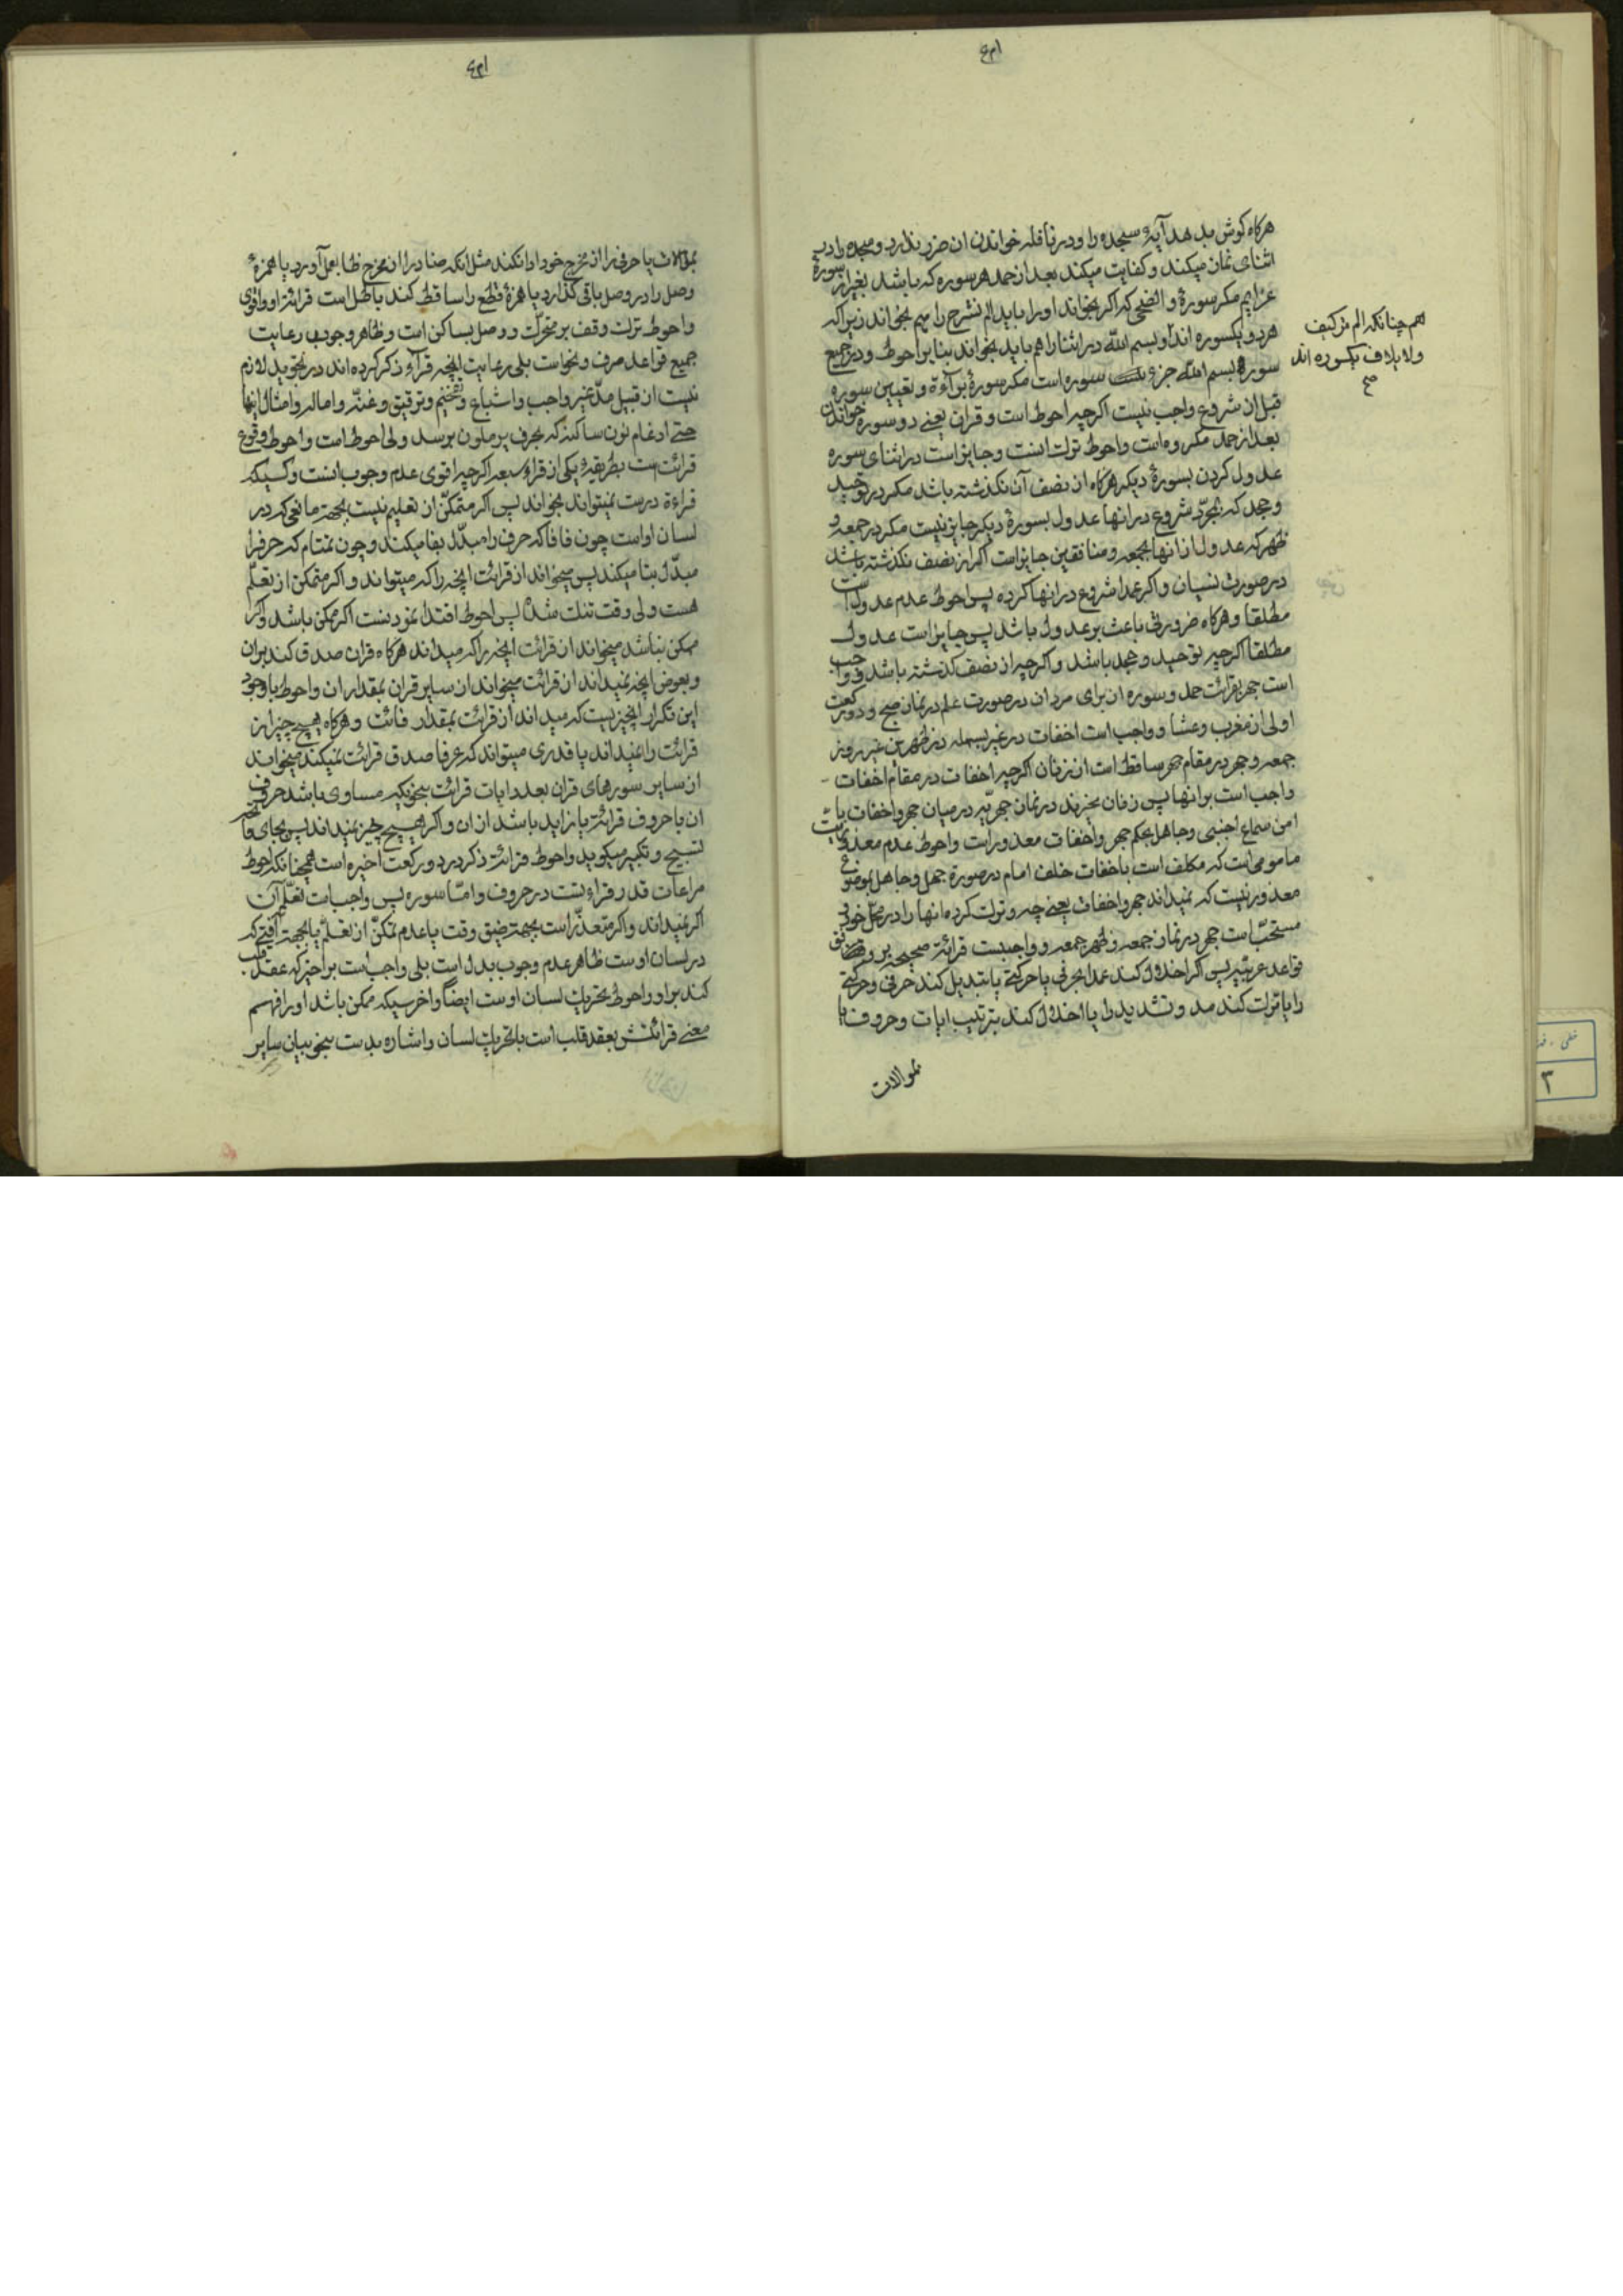 هرکاه کوش بدهد آیهٔ سجده را و در نافله خواندن ان ضرر ندارد و سجده را در
اثنای نماز میکند و کفایت میکند بعد از حمد هر سوره که باشد بغیر از سورهٔ
عزایم مکر سورهٔ و الضحی که اکر بخواند او را باید الم نشرح را هم بخواند زیرا که
هر دو یکسوره اند و بسم الله در اثنا را هم باید بخواند بنا بر احوط و در جمیع
سورها بسم الله جزء سوره است مکر سورهٔ برآءة و تعیین سوره
قبل از شروع واجب نیست اکرچه احوط است و قران یعنی دو سوره خواندن
بعد از حمد مکروه است و احوط ترک انست و جایز است در اثنای سوره
عدول کردن بسورهٔ دیکر هرکاه از نصف آن نکذشته باشد مکر در توحید
و جحد که بمجرّد شروع در انها عدول بسورهٔ دیکر جایز نیست مکر در جمعه و
ظهر که عدول از انها بجمعه و منافقین جایز است اکر از نصف نکذشته باشد
در صورت نسیان و اکر عمدا شروع در انها کرده پس احوط عدم عدول است
مطلقا و هرکاه ضرورتی باعث بر عدول باشد پس جایز است عدول
مطلقا اکرچه توحید و جحد باشد و اکرچه از نصف کذشته باشد و واجب
است جهر بقرائت حمد و سوره از برای مردان در صورت علم در نماز صبح و دو رکعت
اولی از مغرب و عشا و واجب است اخفات در غیر بسمله در ظهرین غیر روز
جمعه و جهر در مقام جهر ساقط است از زنان اکرچه اخفات در مقام اخفات
واجب است بر انها پس زنان مخیرند در نماز جهریّه در میان جهر و اخفات با
امن سماع اجنبی و جاهل بحکم جهر و اخفات معذور است و احوط عدم معذوریت
مامومی است که مکلف است باخفات خلف امام در صورة جهل و جاهل بموضوع
معذور نیست که نمیداند جهر و اخفات یعنی چه و ترک کرده انها را در محلّ خود و
مستحبّ است جهر در نماز جمعه و ظهر جمعه و واجبست قرائة صحیحه بر وفق
قواعد عربیّه پس اکر اخلال کند عمدا بحرفی یا حرکتی یا تبدیل کند حرفی و حرکتی
را یا ترک کند مد و تشدید را یا اخلال کند بترتیب ایات و حروف یا
بموالات
هم چنانکه الم تر کیف
و لایلاف یکسوره اند
صح
بموالات یا حرفی را از مخرج خود ادا نکند مثل انکه ضاد را از مخرج ظا بعمل آورد یا همزهٔ
وصل را در وصل باقی کذارد یا همزهٔ قطع را ساقط کند باطل است قرائة او و اقوی
و احوط ترک وقف بر متحرّک و وصل بساکن است و ظاهر وجوب رعایت
جمیع قواعد صرف و نحو است بلی رعایت انچه قرآء ذکر کرده اند در تجوید لازم
نیست از قبیل مدّ غیر واجب و اشباع و تفخیم و ترقیق و غنّه و اماله و امثال اینها
حتی ادغام نون ساکنه که بحرف یرملون برسد ولی احوط است و احوط وقوع
قرائت است بطریقهٔ یکی از قراء سبعه اکرچه اقوی عدم وجوب انست و کسیکه
قراءة درست نمیتواند بخواند پس اکر متمکّن از تعلیم نیست بجهة مانعی که در
لسان اوست چون فافا که حرف را مبدّل بفا میکند و چون تمتام که حرفرا
مبدّل بتا میکند پس میخواند از قرائت انچه را که میتواند و اکر متمکن از تعلّم
هست ولی وقت تنک شده پس احوط اقتدا نمودنست اکر ممکن باشد و اکر
ممکن نباشد میخواند از قرائت انچه را که میداند هرکاه قران صدق کند بر ان
و بعوض انچه نمیداند از قرائت میخواند از سایر قران بمقدار ان و احوط با وجود
این تکرار انچیزیست که میداند از قرائت بمقدار فائت و هرکاه هیچ چیز از
قرائت را نمیداند یا قدری میتواند که عرفا صدق قرائت نمیکند میخواند
از سایر سورهای قران بعدد ایات قرائت بنحویکه مساوی باشد حروف
ان با حروف قرائة یا زاید باشد از ان و اکر هیچ چیز نمیداند پس بجای فاتحه
تسبیح و تکبیر میکوید و احوط قرائة ذکر در دو رکعت اخیره است همچنانکه احوط
مراعات قدر قراءتست در حروف و امّا سوره پس واجب است تعلّم آن
اکر نمیداند و اکر متعذّر است بجهة ضیق وقت یا عدم تمکّن از تعلّم یا بجهة آفتی که
در لسان اوست ظاهر عدم وجوب بدل است بلی واجب است بر اخرس که عقد قلب
کند بر او و احوط تحریک لسان اوست ایضاً و اخرسیکه ممکن باشد او را فهم
معنی قرائتش بعقد قلب است با تحریک لسان و اشاره بدست بنحو بیان سایر